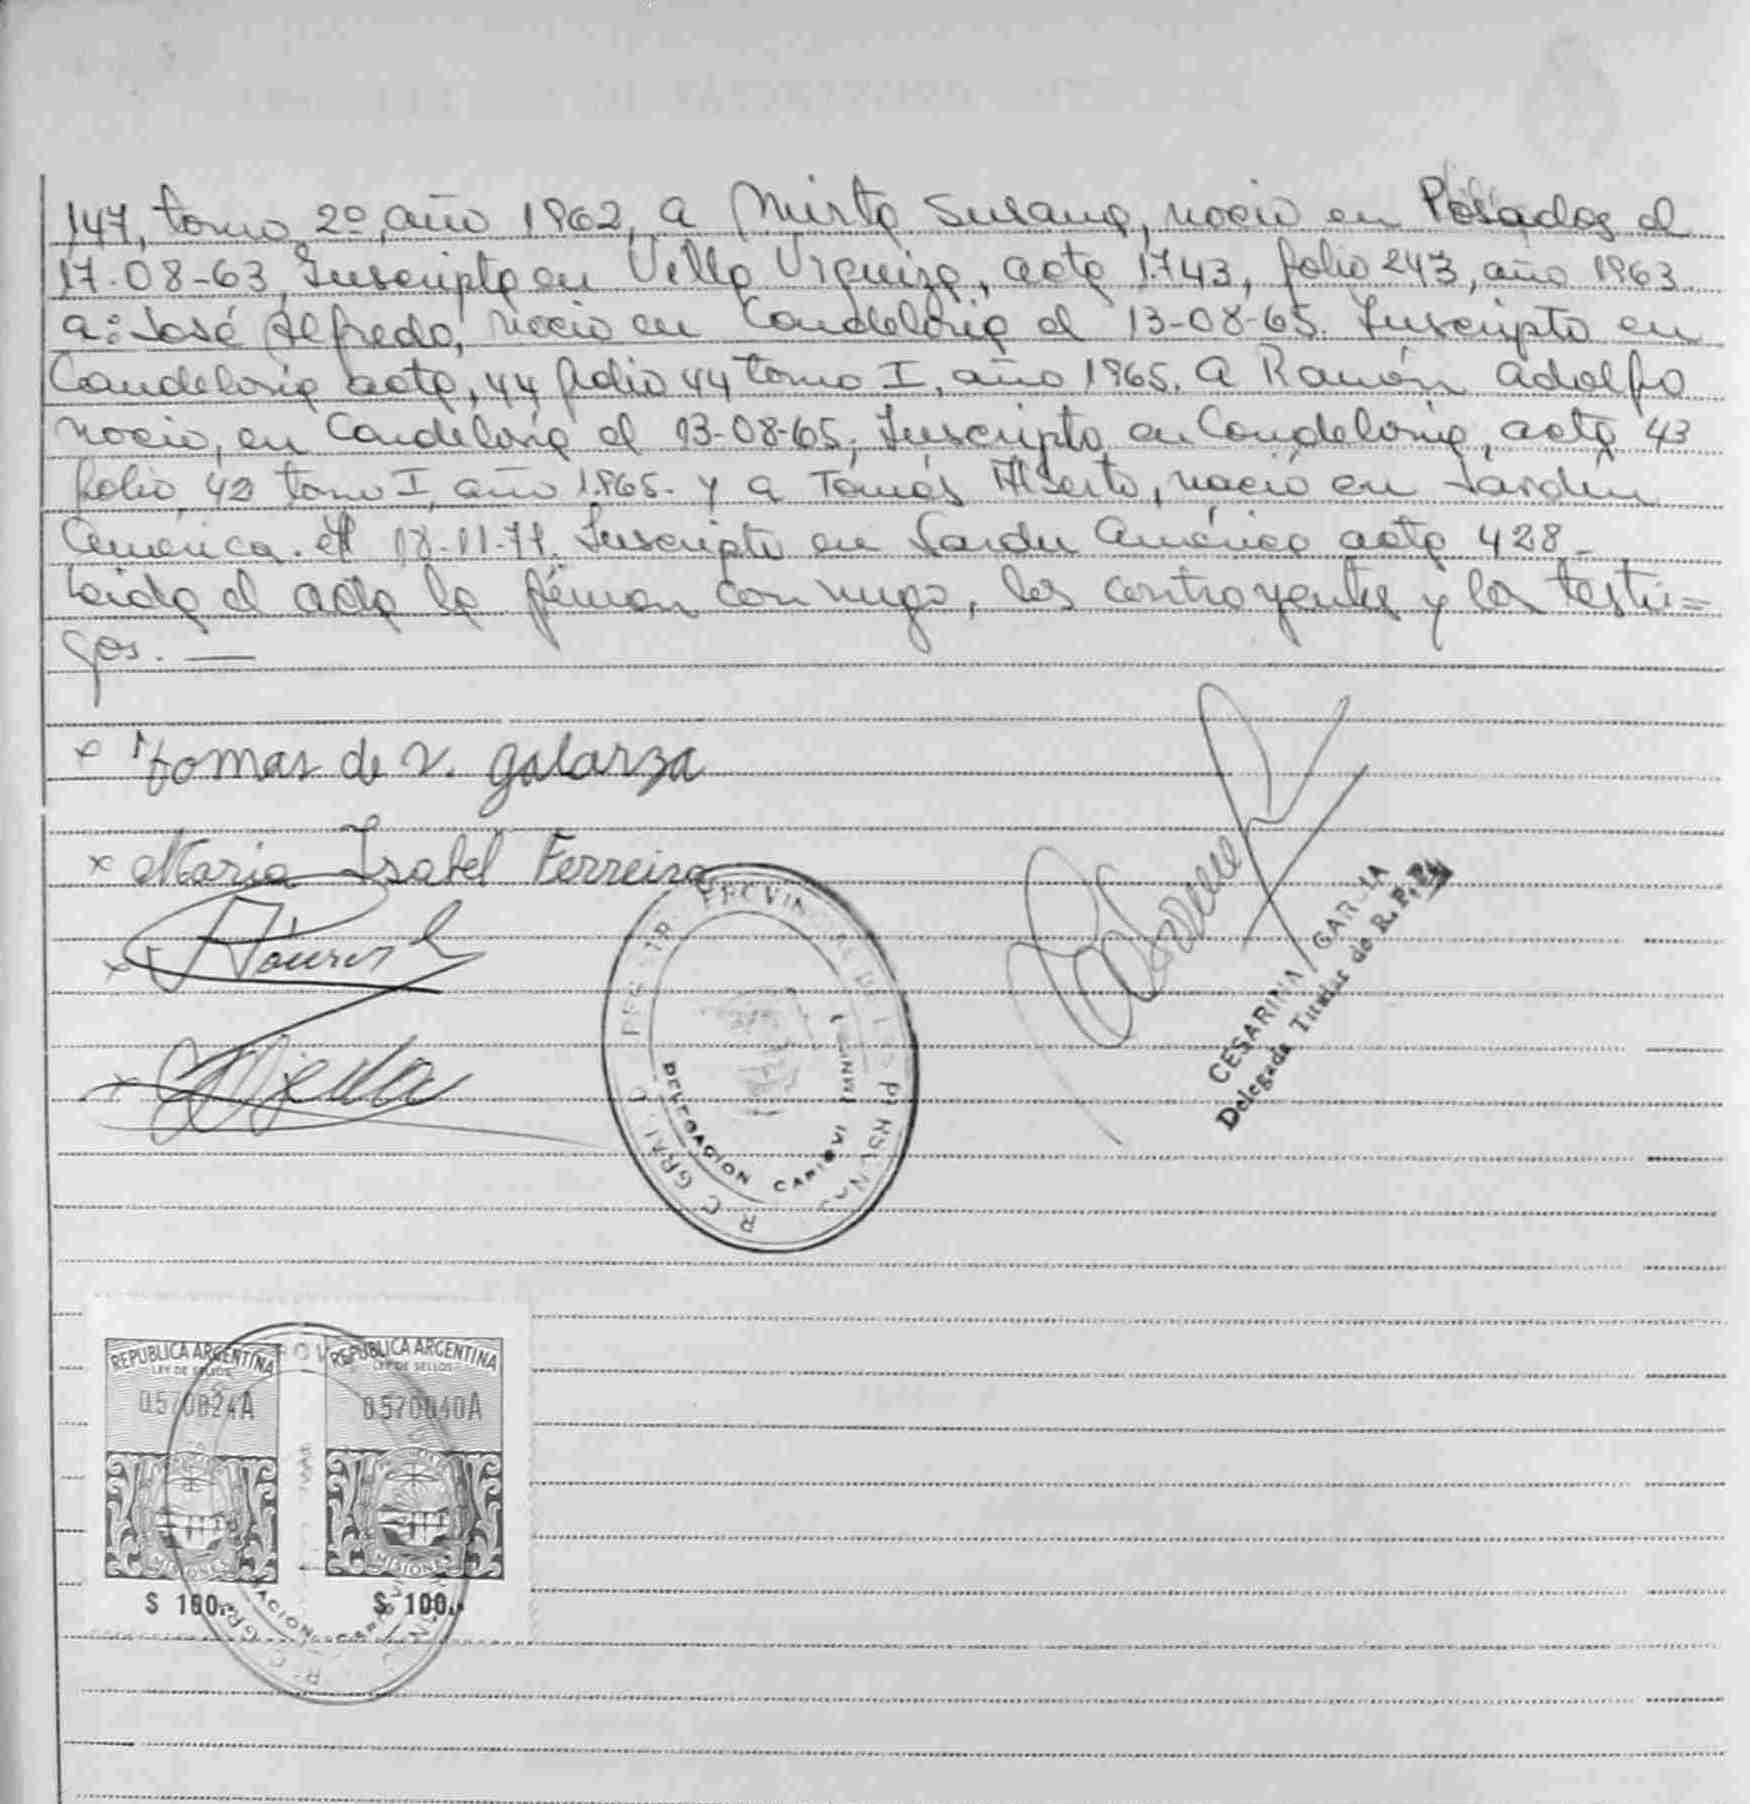 147, tomo 2º, año 1962, a Mirta Susana, nació en Posadas el
17-08-63, Inscripta en Villa Urquiza, acta 1743, folio 243, año 1963.
a: José Alfredo, nació en Candelaria el 13-08-65. Inscripto en
Candelaria acta, 44 folio 44 tomo I, año 1965. a Ramón Adolfo
nació, en Candelaria el 13-08-65, Inscripto en Candelaria, acta 43
folio 42 tomo I, año 1.965. y a Tomás Alberto, nació en Jardín
América. el 18-11-71. Inscripto en Jardín América acta 428-
Leida el acta la firman conmigo, los contrayentes y los testi=
gos. —
x Tomas de v. galarza
x Maria Isabel Ferreira
CESARINA GARCIA
Delegada Titular de R. P. P.
DELEGACION CAPIOVI
REPUBLICA ARGENTINA REPUBLICA ARGENTINA
LEY DE SELLOS LEY DE SELLOS
MISIONES MISIONES
$ 100.- $ 100.-